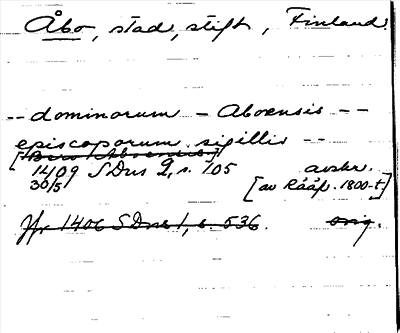 Åbo, stad, stift, Finland.
-- dominorum - Aboensis --
episcoporum sigillis --
1409 SDns 2, s. 105 avskr.
30/5 [av Rääf. 1800-t]
Jfr 1406 SDns 1, s. 536. orig.